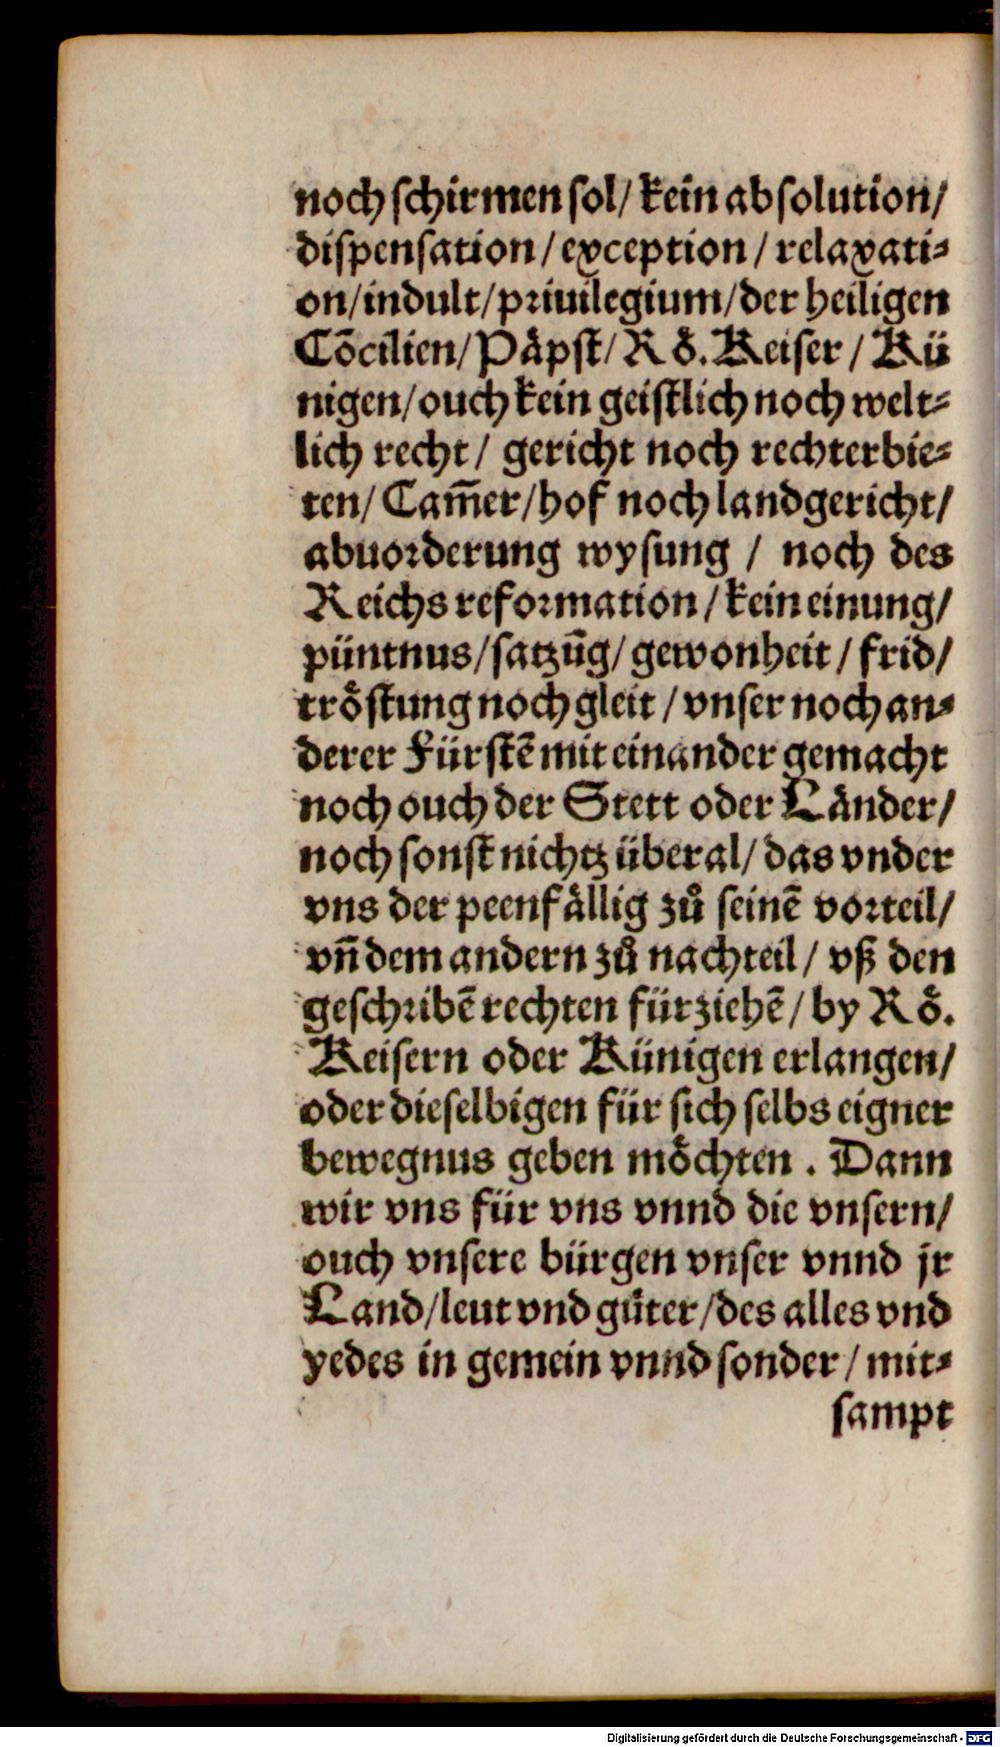 noch schirmen sol/ kein absolution/
dispensation/ exception/ relaxati⸗
on/indult/priuilegium/der heiligen
Cōcilien/Pаͤpst/ Roͤ. Keiser/ Kü
nigen/ouch kein geistlich noch welt⸗
lich recht/ gericht noch rechterbie⸗
ten/ Cam̄er/hof noch landgericht/
abuorderung wysung / noch des
Reichs reformation/kein einung/
püntnus/satzūg/gewonheit/frid/
troͤstung noch gleit/vnser noch an⸗
derer Fürstē mit einander gemacht
noch ouch der Stett oder Laͤnder/
noch sonst nichtz überal/das vnder
vns der peenfaͤllig zuͦ seinē vorteil/
vn̄ dem andern zuͦ nachteil/ vß den
geschribē rechten fürziehē/by Roͤ.
Keisern oder Künigen erlangen/
oder dieselbigen für sich selbs eigner
bewegnus geben moͤchten . Dann
wir vns für vns vnnd die vnsern/
ouch vnsere bürgen vnser vnnd jr
Land/leut vnd guͤter/des alles vnd
yedes in gemein vnnd sonder/mit⸗
sampt
Digitalisierung gefördert durch die Deutsche Forschungsgemeinschaft - DFG